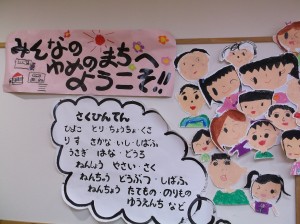 みんなの
ゆめのまちへ
ようこそ!!
さくひんてん
ひよこ とり ちょうちょ・くさ
りす さかな いし・しばふ
うさぎ はな・どうろ
ねんしょう やさい・さく
ねんちゅう どうぶつ・しばふ
ねんちょう たてもの・のりもの
ゆうえんち など